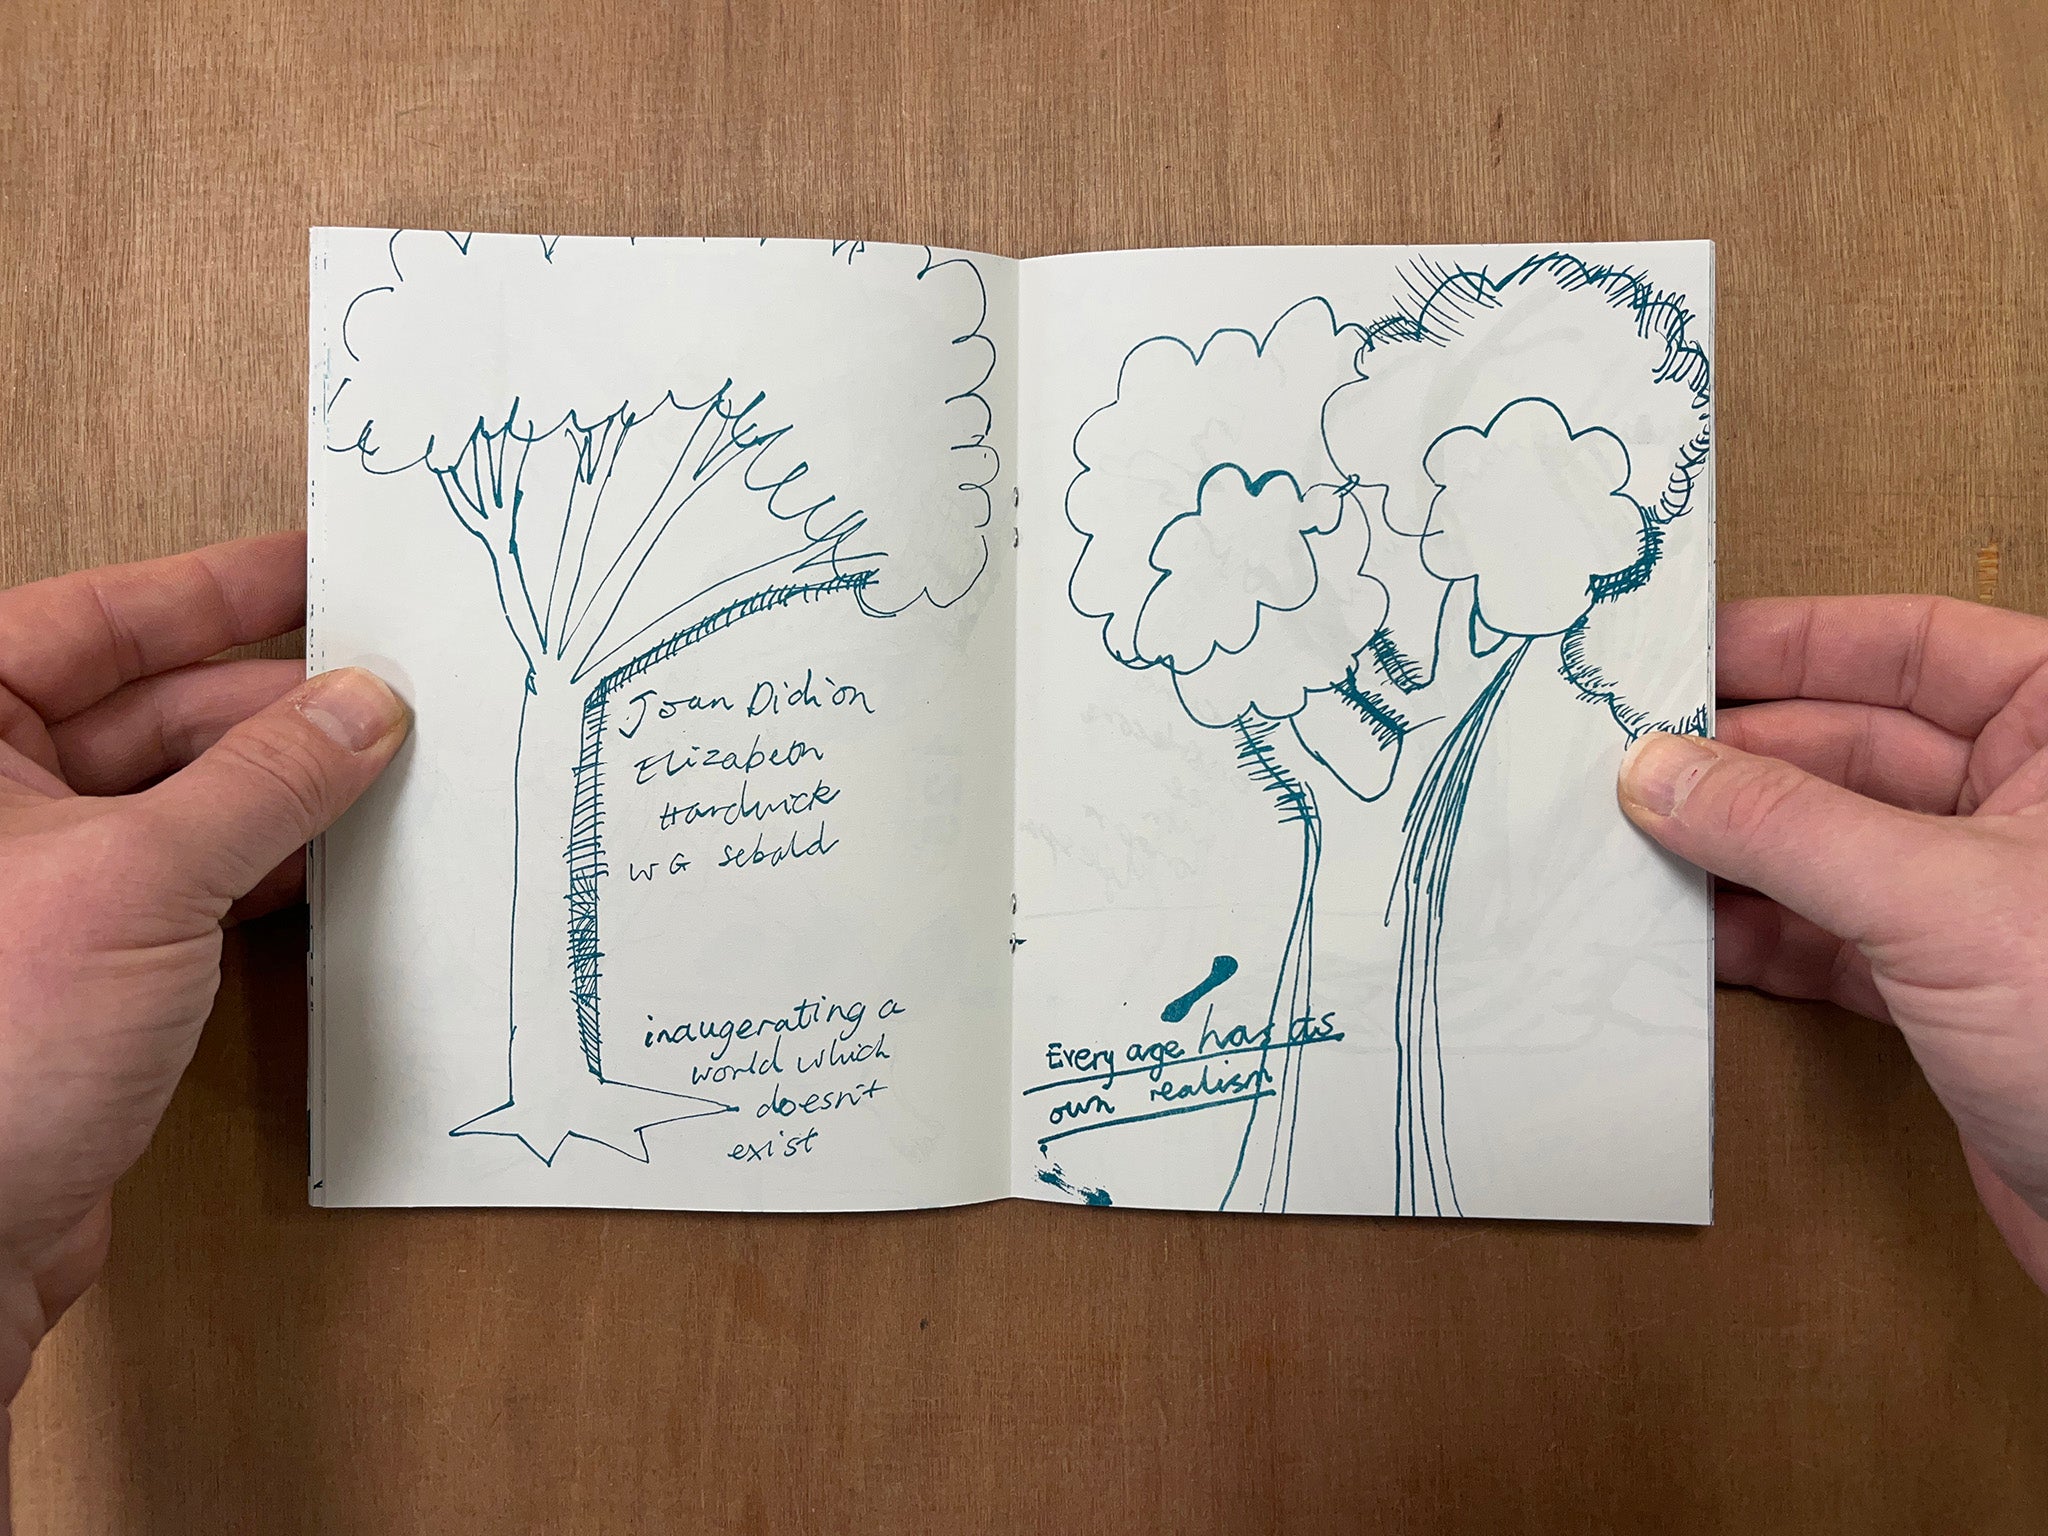 Joan Didion
Elizabeth
Hardwick
W G Sebald
inaugerating a
world which
doesn't
exist
Every age has its
own realism